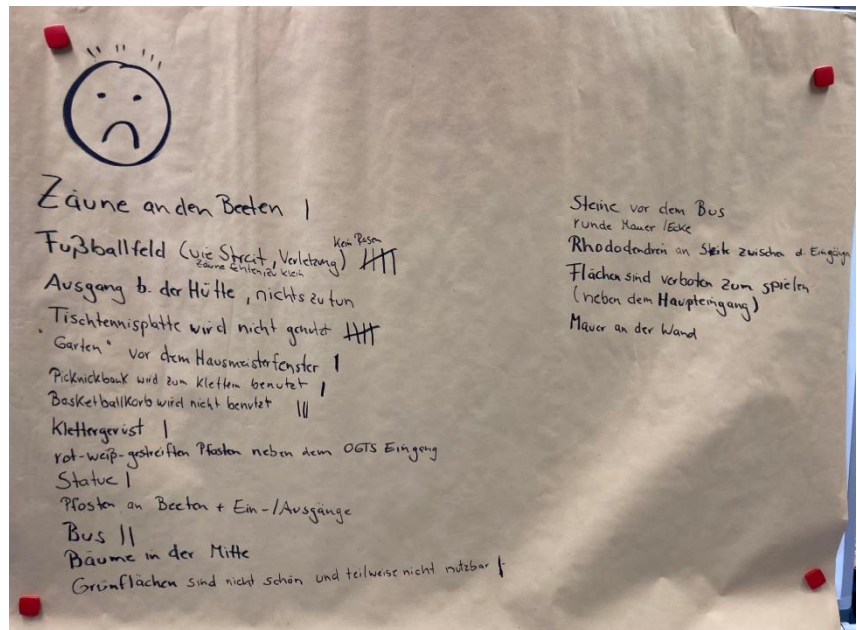 Zäune an den Beeten |
Fußballfeld (vie Streit, Verletzung) Kein Rasen 卌
Zäune zu klein
Ausgang b. der Hütte, nichts zu tun
Tischtennisplatte wird nicht genutzt 卌
"Garten" vor dem Hausmeisterfenster |
Picknickbank wird zum Klettern benutzt |
Basketballkorb wird nicht benutzt |||
Klettergerüst |
rot-weiß-gestreiften Pfosten neben dem OGTS Eingang
Statue |
Pfosten an Beeten + Ein-/Ausgänge
Bus ||
Bäume in der Mitte
Grünflächen sind nicht schön und teilweise nicht nutzbar |
Steine vor dem Bus
runde Mauer /Ecke
Rhododendren an Seite zwischen d. Eingängn
Flächen sind verboten zum spielen
(neben dem Haupteingang)
Mauer an der Wand